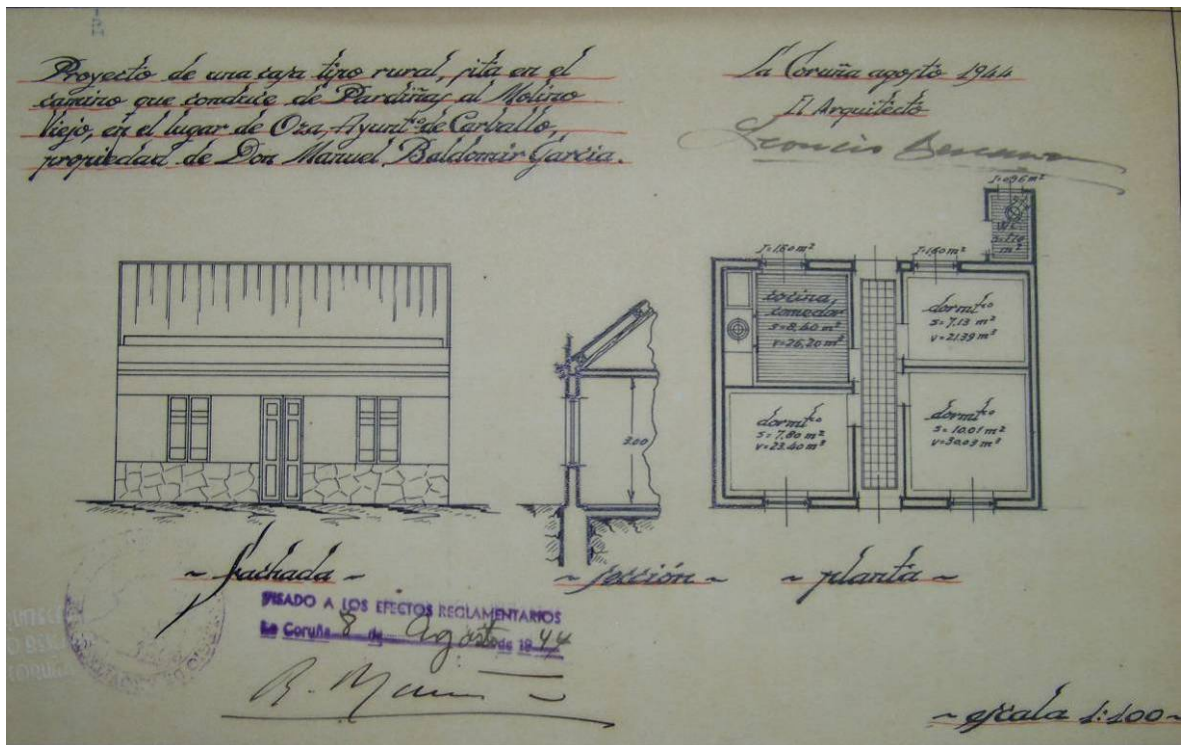 Proyecto de una casa tipo rural, sita en el
camino que conduce de Pardiñas al Molino
Viejo, en el lugar de Oza, Ayuntto de Carballo,
propiedad de Don Manuel Baldomir García.
La Coruña agosto 1944
El Arquitecto
Leoncio Bescansa
J=0,96 m²
W.C.
J=1,60 m²
J=1,60 m²
cocina,
comedor
s=8,40 m²
v=25,20 m³
dormito
s=7,13 m²
v=21,39 m³
dormito
s=7,80 m²
v=23,40 m³
dormito
s=10,01 m²
v=30,03 m³
3,00
~ fachada ~
~ sección ~
~ planta ~
VISADO A LOS EFECTOS REGLAMENTARIOS
La Coruña 8 de Agosto de 1944
~ escala 1:100 ~